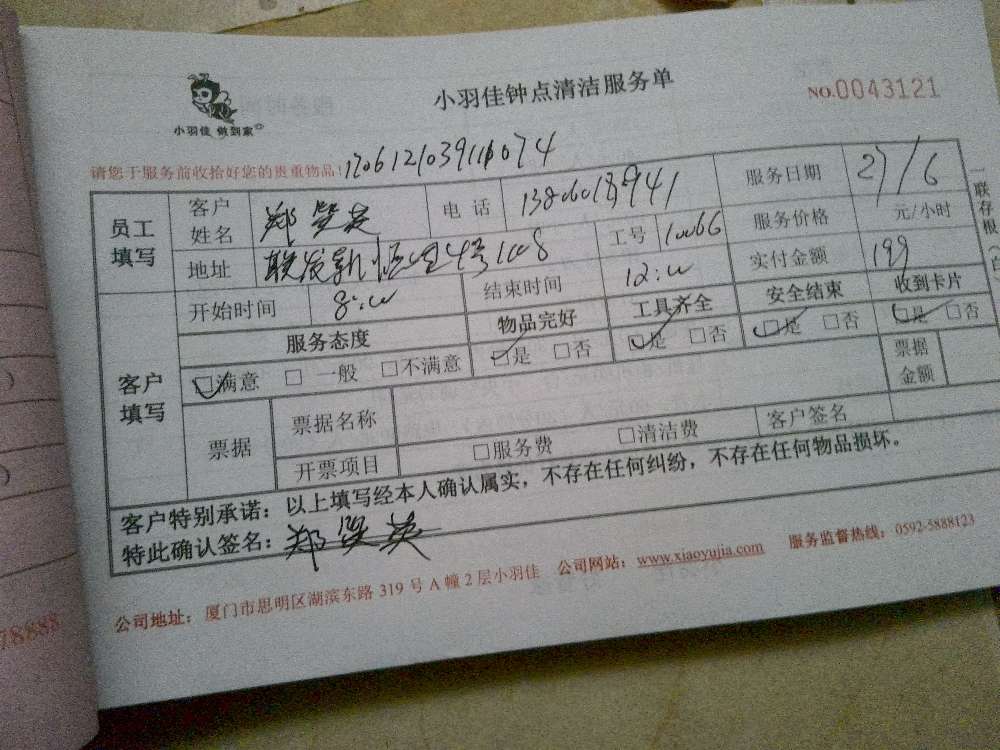 小羽佳 做到家
小羽佳钟点清洁服务单
NO.0043121
请您于服务前收拾好您的贵重物品!
员工填写 客户姓名 郑 英 电话 服务日期 27/6
地址 联发新 1008 工号 10066 服务价格 元/小时
实付金额 199
客户填写 开始时间 8:00 结束时间 12:00
服务态度 物品完好 工具齐全 安全结束 收到卡片
☑满意 □ 一般 □不满意 ☑是 □否 ☑是 □否 ☑是 □否 ☑是 □否
票据 票据名称 票据金额
开票项目 □服务费 □清洁费 客户签名
客户特别承诺：以上填写经本人确认属实，不存在任何纠纷，不存在任何物品损坏。
特此确认签名：郑 英
公司地址：厦门市思明区湖滨东路 319 号 A 幢 2 层小羽佳 公司网站：www.xiaoyujia.com 服务监督热线：0592-5888123
一联存根(白
78888